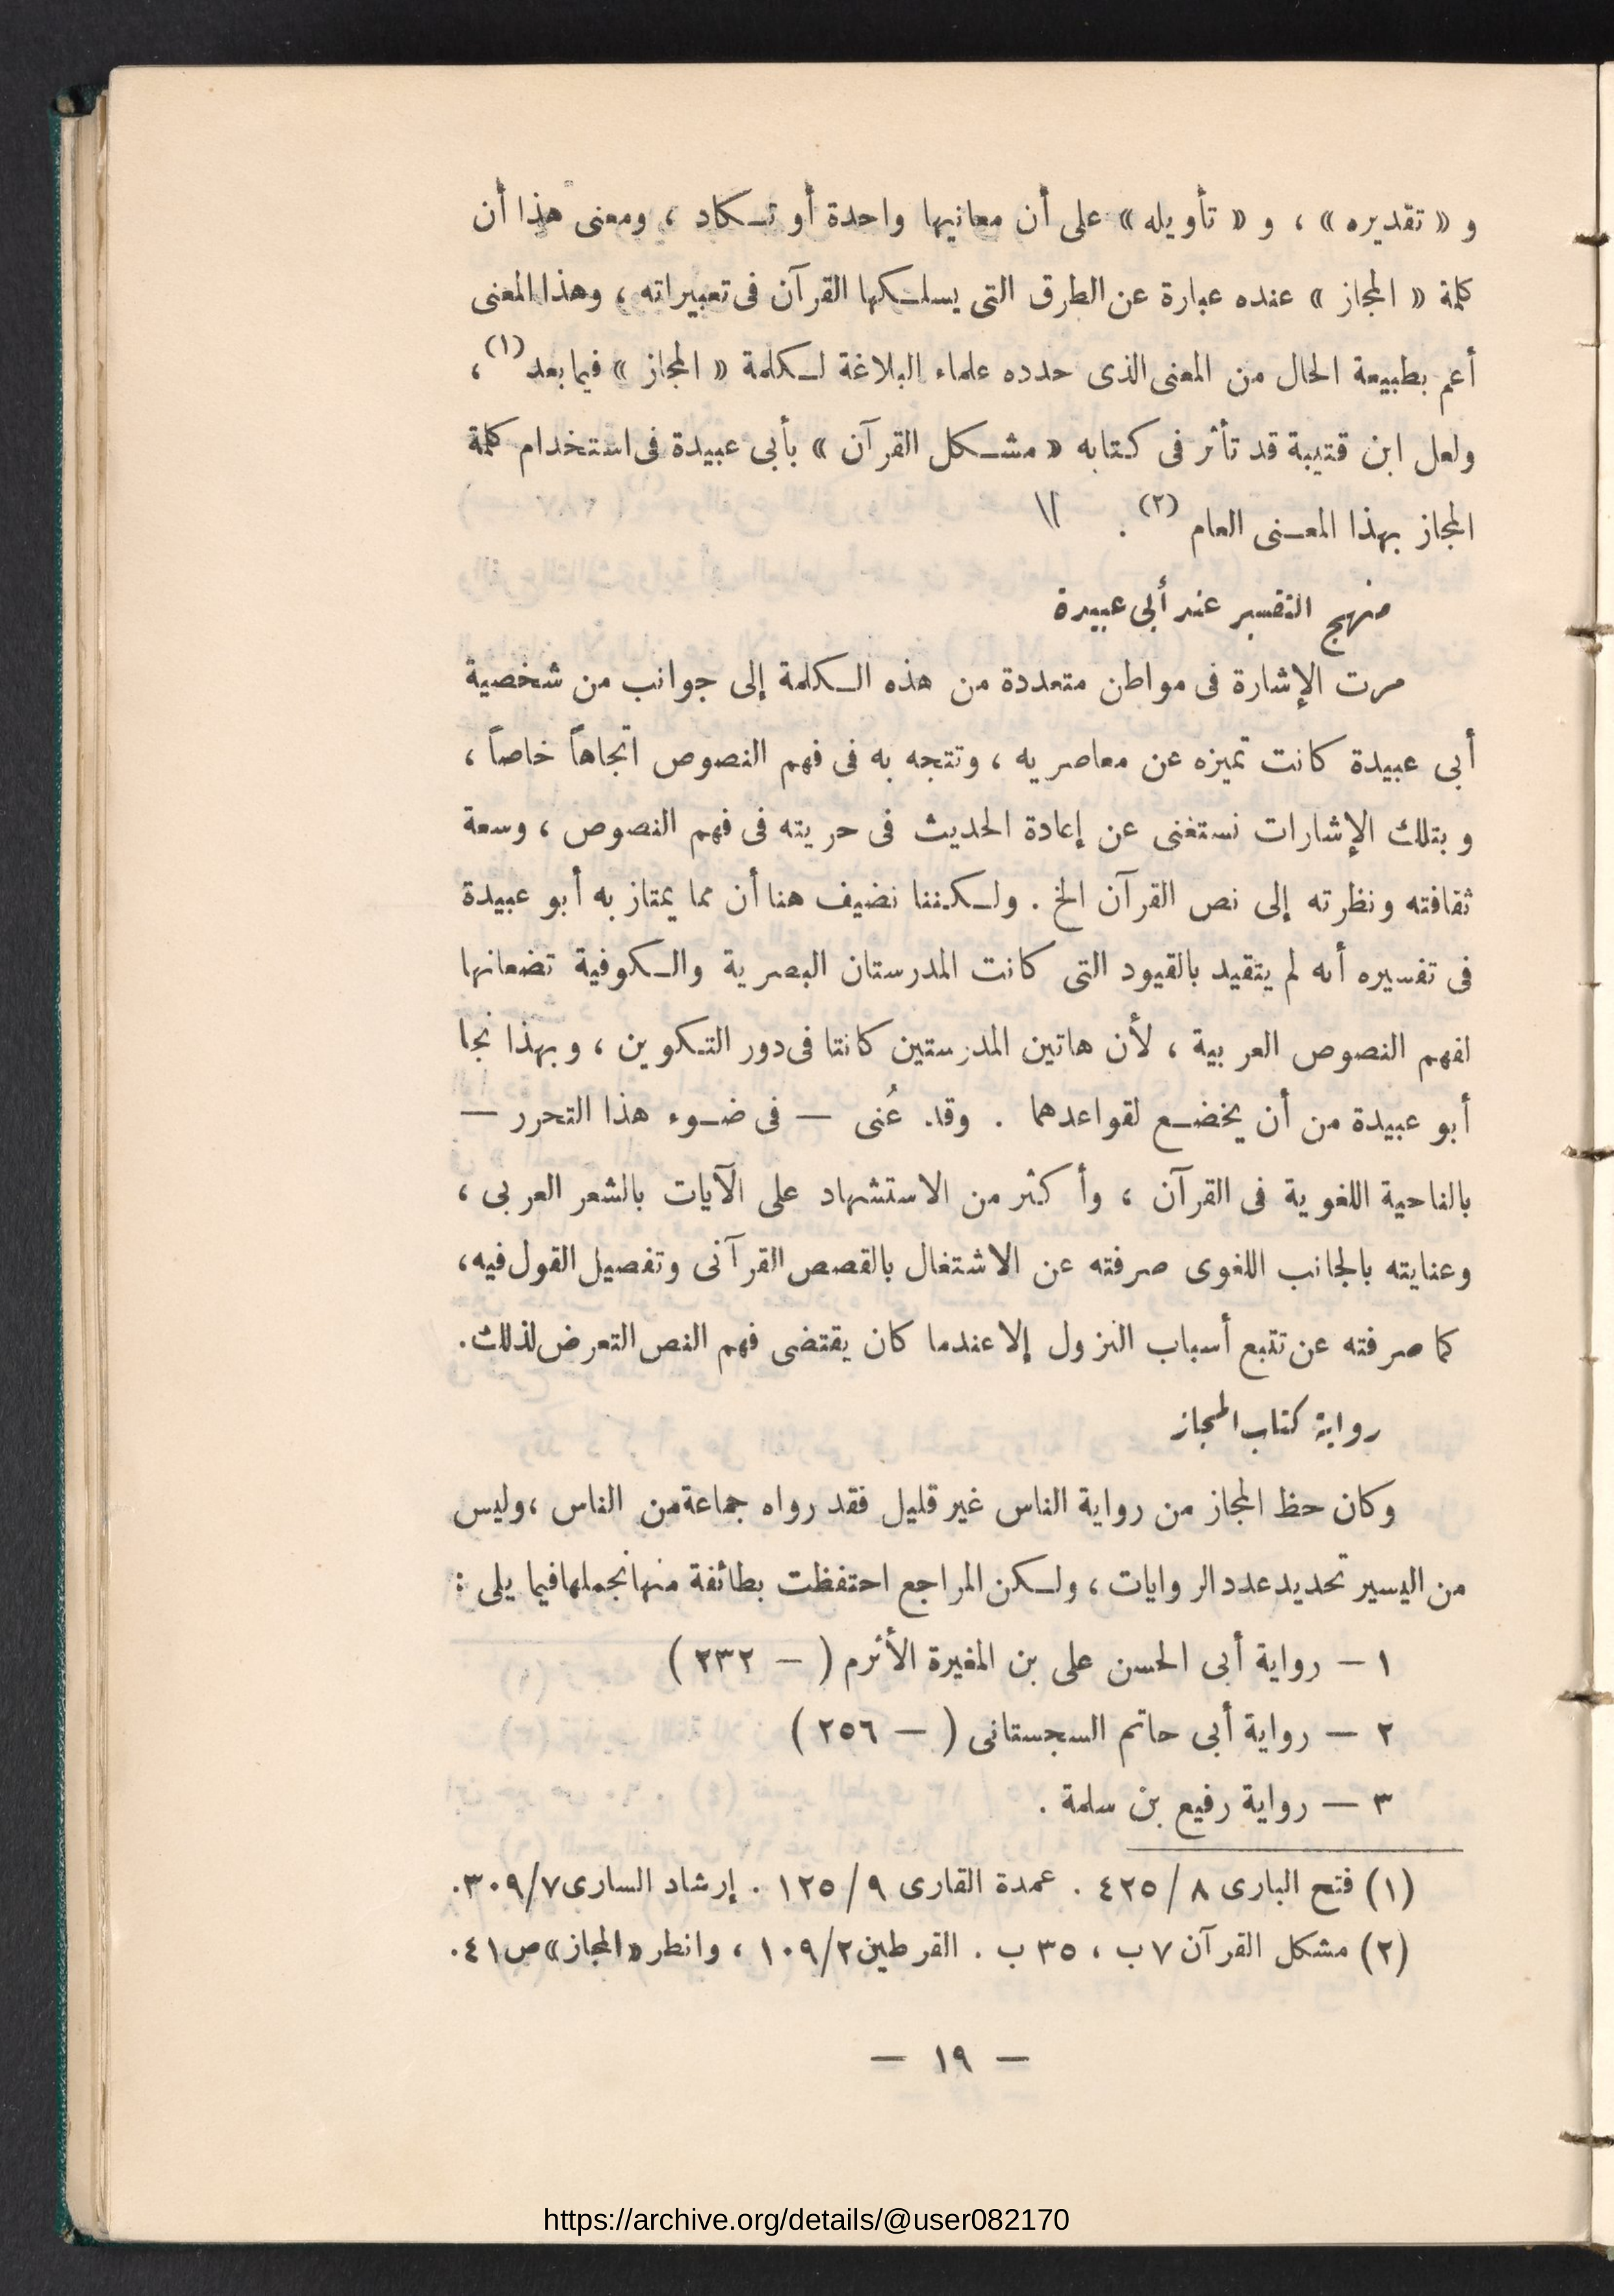 و « تقديره » ، و « تأويله » على أن معانيها واحدة أو تـكاد ، ومعنى هذا أن
كلمة « المجاز » عنده عبارة عن الطرق التى يسلـكها القرآن فى تعبيراته ، وهذا المعنى
أعم بطبيعة الحال من المعنى الذى حدده علماء البلاغة لـكلمة « المجاز » فيما بعد (١) ،
ولعل ابن قتيبة قد تأثر فى كتابه « مشـكل القرآن » بأبى عبيدة فى استخدام كلمة
المجاز بهذا المعـنى العام (٢) .
منهج التفسير عند أبى عبيدة
مرت الإشارة فى مواطن متعددة من هذه الـكلمة إلى جوانب من شخصية
أبى عبيدة كانت تميزه عن معاصريه ، وتتجه به فى فهم النصوص اتجاهاً خاصاً ،
وبتلك الإشارات نستغنى عن إعادة الحديث فى حريته فى فهم النصوص ، وسعة
ثقافته ونظرته إلى نص القرآن الخ . ولـكننا نضيف هنا أن مما يمتاز به أبو عبيدة
فى تفسيره أنه لم يتقيد بالقيود التى كانت المدرستان البصرية والـكوفية تضعانها
لفهم النصوص العربية ، لأن هاتين المدرستين كانتا فى دور التـكوين ، وبهذا نجا
أبو عبيدة من أن يخضـع لقواعدهما . وقد عُنى — فى ضـوء هذا التحرر —
بالناحية اللغوية فى القرآن ، وأكثر من الاستشهاد على الآيات بالشعر العربى ،
وعنايته بالجانب اللغوى صرفته عن الاشتغال بالقصص القرآنى وتفصيل القول فيه،
كما صرفته عن تتبع أسباب النزول إلا عندما كان يقتضى فهم النص التعرض لذلك.
رواية كتاب المجاز
وكان حظ المجاز من رواية الناس غير قليل فقد رواه جماعة من الناس ، وليس
من اليسير تحديد عدد الروايات ، ولـكن المراجع احتفظت بطائفة منها نجملها فيما يلى :
١ — رواية أبى الحسن على بن المغيرة الأثرم ( — ٢٣٢ )
٢ — رواية أبى حاتم السجستانى ( — ٢٥٦ )
٣ — رواية رفيع بن سلمة .
(١) فتح البارى ٨ / ٤٢٥ . عمدة القارى ٩ / ١٢٥ . إرشاد السارى ٧/ ٣٠٩.
(٢) مشكل القرآن ٧ ب ، ٣٥ ب . القرطين ٢/ ١٠٩ ، وانظر «المجاز» ص ٤١.
— ١٩ —
https://archive.org/details/@user082170